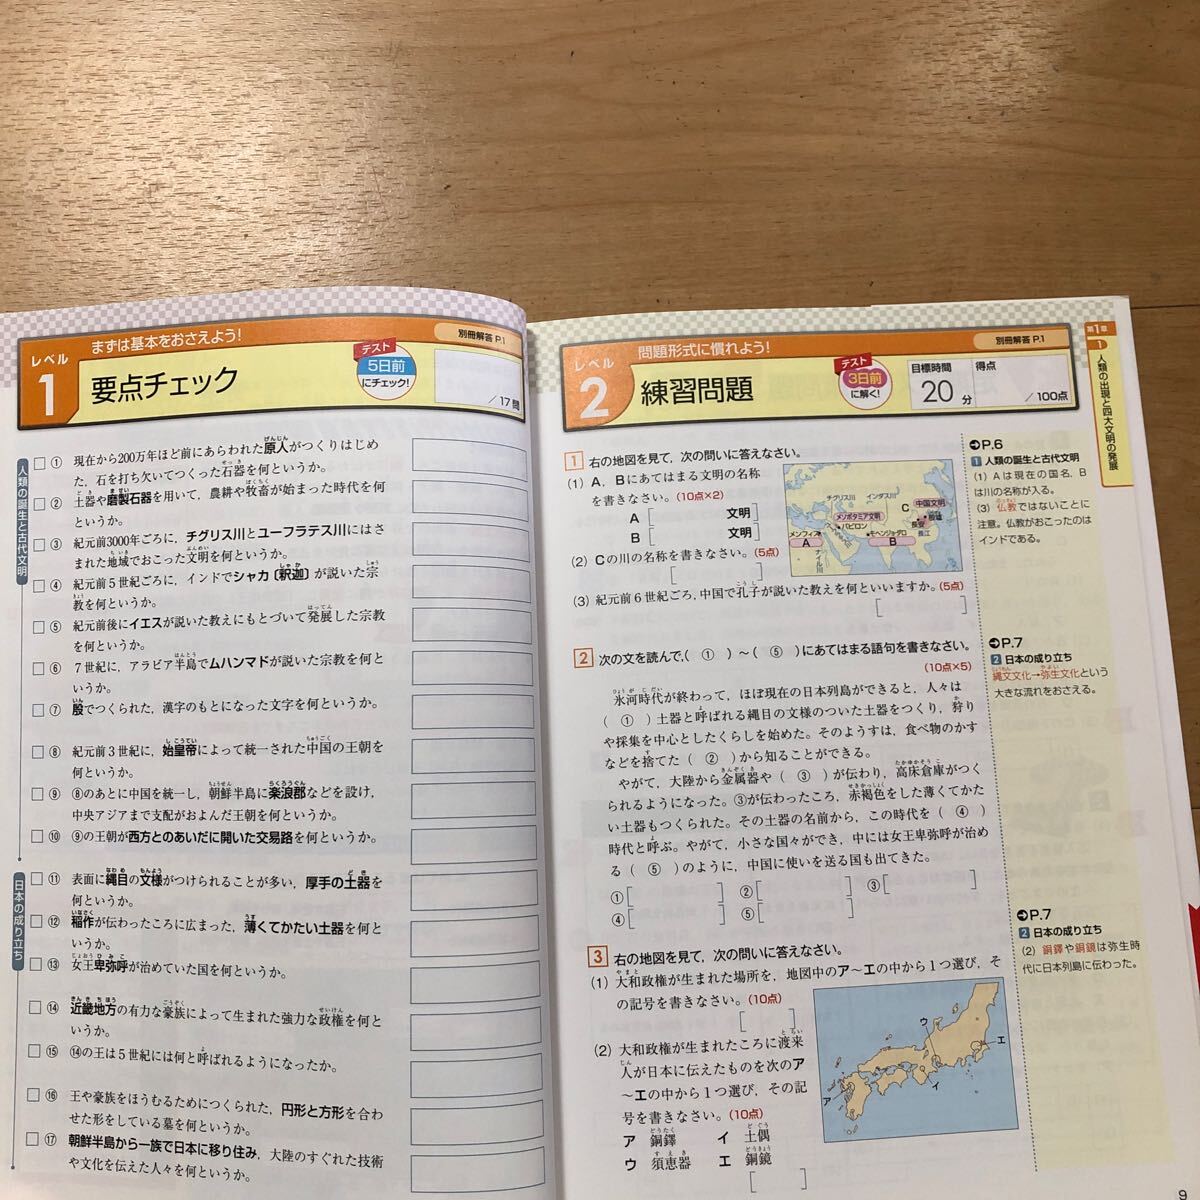 まずは基本をおさえよう!
別冊解答 P.1
レベル
1
要点チェック
テスト
5日前
にチェック!
/17問
人類の誕生と古代文明
□ ① 現在から200万年ほど前にあらわれた原人がつくりはじめ
た,石を打ち欠いてつくった石器を何というか。
□ ② 土器や磨製石器を用いて,農耕や牧畜が始まった時代を何
というか。
□ ③ 紀元前3000年ごろに,チグリス川とユーフラテス川にはさ
まれた地域でおこった文明を何というか。
□ ④ 紀元前5世紀ごろに,インドでシャカ〔釈迦〕が説いた宗
教を何というか。
□ ⑤ 紀元前後にイエスが説いた教えにもとづいて発展した宗教
を何というか。
□ ⑥ 7世紀に,アラビア半島でムハンマドが説いた宗教を何と
いうか。
□ ⑦ 殷でつくられた,漢字のもとになった文字を何というか。
□ ⑧ 紀元前3世紀に,始皇帝によって統一された中国の王朝を
何というか。
□ ⑨ ⑧のあとに中国を統一し,朝鮮半島に楽浪郡などを設け,
中央アジアまで支配がおよんだ王朝を何というか。
□ ⑩ ⑨の王朝が西方とのあいだに開いた交易路を何というか。
日本の成り立ち
□ ⑪ 表面に縄目の文様がつけられることが多い,厚手の土器を
何というか。
□ ⑫ 稲作が伝わったころに広まった,薄くてかたい土器を何と
いうか。
□ ⑬ 女王卑弥呼が治めていた国を何というか。
□ ⑭ 近畿地方の有力な豪族によって生まれた強力な政権を何と
いうか。
□ ⑮ ⑭の王は5世紀には何と呼ばれるようになったか。
□ ⑯ 王や豪族をほうむるためにつくられた,円形と方形を合わ
せた形をしている墓を何というか。
□ ⑰ 朝鮮半島から一族で日本に移り住み,大陸のすぐれた技術
や文化を伝えた人々を何というか。
問題形式に慣れよう!
別冊解答 P.1
レベル
2
練習問題
テスト
3日前
に解く!
目標時間
20分
得点
/100点
第1章
1
人類の出現と四大文明の発展
1 右の地図を見て,次の問いに答えなさい。
(1) A,Bにあてはまる文明の名称
を書きなさい。(10点×2)
A[ 文明]
B[ 文明]
(2) Cの川の名称を書きなさい。(5点)
[ ]
(3) 紀元前6世紀ごろ,中国で孔子が説いた教えを何といいますか。(5点)
[ ]
チグリス川
インダス川
C
中国文明
メソポタミア文明
バビロン
殷墟
長安
長江
メンフィス
A
モヘンジョダロ
B
ナイル川
2 次の文を読んで,( ① )~( ⑤ )にあてはまる語句を書きなさい。
(10点×5)
氷河時代が終わって,ほぼ現在の日本列島ができると,人々は
( ① )土器と呼ばれる縄目の文様のついた土器をつくり,狩り
や採集を中心としたくらしを始めた。そのようすは,食べ物のかす
などを捨てた( ② )から知ることができる。
やがて,大陸から金属器や( ③ )が伝わり,高床倉庫がつく
られるようになった。③が伝わったころ,赤褐色をした薄くてかた
い土器もつくられた。その土器の名前から,この時代を( ④ )
時代と呼ぶ。やがて,小さな国々ができ,中には女王卑弥呼が治め
る( ⑤ )のように,中国に使いを送る国も出てきた。
①[ ] ②[ ] ③[ ]
④[ ] ⑤[ ]
3 右の地図を見て,次の問いに答えなさい。
(1) 大和政権が生まれた場所を,地図中のア~エの中から1つ選び,そ
の記号を書きなさい。(10点)
[ ]
(2) 大和政権が生まれたころに渡来
人が日本に伝えたものを次のア
~エの中から1つ選び,その記
号を書きなさい。(10点)
ア 銅鐸 イ 土偶
ウ 須恵器 エ 銅鏡
[ ]
ウ
エ
イ
ア
P.6
1 人類の誕生と古代文明
(1) Aは現在の国名,B
は川の名称が入る。
(3) 仏教ではないことに
注意。仏教がおこったのは
インドである。
P.7
2 日本の成り立ち
縄文文化→弥生文化という
大きな流れをおさえる。
P.7
2 日本の成り立ち
(2) 銅鐸や銅鏡は弥生時
代に日本列島に伝わった。
9